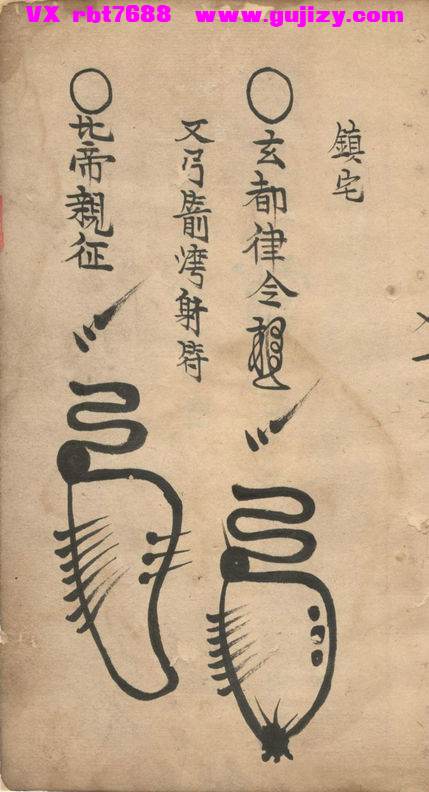 VX rbt7688 www.gujizy.com
鎮宅
○玄都律令
又弓箭灣射
○北帝親征